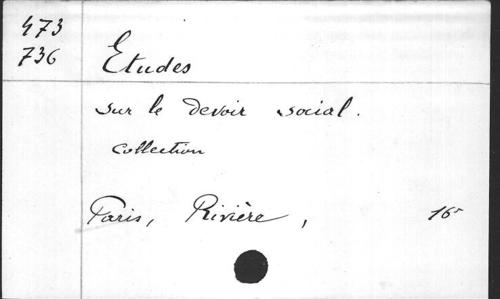 473
736
Etudes
sur le devoir social.
collection
Paris, Rivière, 16°